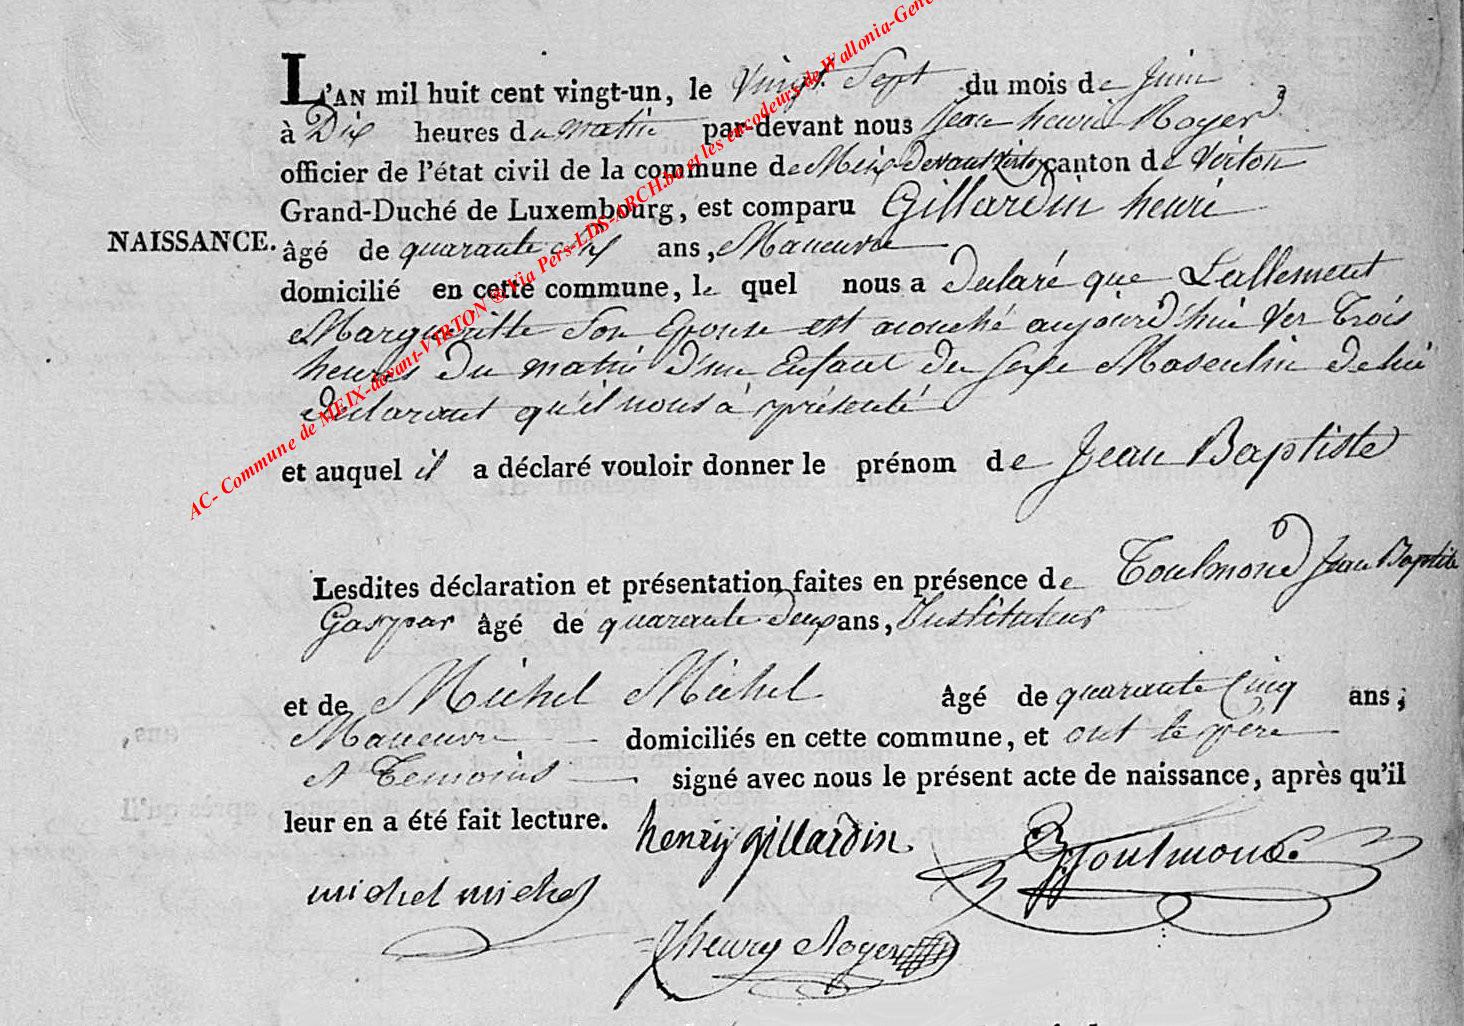 L'AN mil huit cent vingt-un, le Vingt Sept du mois de Juin
à Dix heures du matin par-devant nous Jean henri Royer
officier de l'état civil de la commune de Meix Devant Virton canton de Virton
Grand-Duché de Luxembourg, est comparu Gillardin henri
NAISSANCE. âgé de quarante ans, Maneuvre
domicilié en cette commune, le quel nous a Déclaré que Lallement
Margueritte Son Epouse est acouché aujourd'hui Ver Trois
heures Du matin D'un Enfant du Sexe Masculin De lui
Déclarant qu'il nous a présenté
et auquel il a déclaré vouloir donner le prénom de Jean Baptiste
Lesdites déclaration et présentation faites en présence de Toulmond Jean Baptiste
Gaspar âgé de quarante Deux ans, Instituteur
et de Michel Michel âgé de quarante Cinq ans,
Maneuvre domiciliés en cette commune, et ont le père
et Temoins signé avec nous le présent acte de naissance, après qu'il
leur en a été fait lecture.
henry gillardin
Toulmond
michel michel
J henry Royer
AC- Commune de MEIX-devant-VIRTON ® Via Pers-LDS-ARCH.be et les encodeurs de Wallonia-Gene